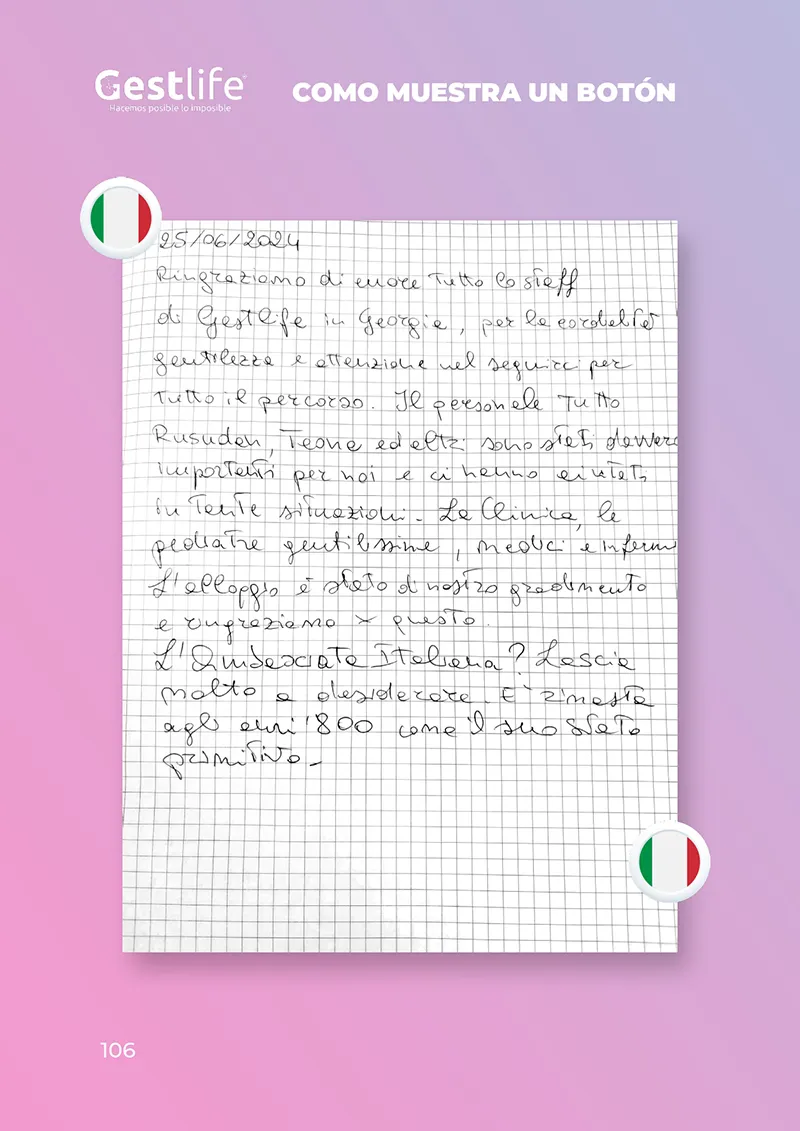 Gestlife
Hacemos posible lo imposible
COMO MUESTRA UN BOTÓN
25/06/2024
Ringraziamo di cuore tutto lo staff
di Gestlife in Georgia, per la cordalità
gentilezza e attenzione nel seguirci per
tutto il percorso. Il personale tutto
Rusudan, Teona ed altri sono stati davvero
importanti per noi e ci hanno aiutati
in tante situazioni. La Clinica, le
pediatre gentilissime, medici e inferm
L'alloggio è stato di nostro gradimento
e ringraziamo x questo.
L'Ambasciata Italiana? Lascia
molto a desiderare. E' rimasta
agli anni '800 come il suo Stato
primitivo.
106